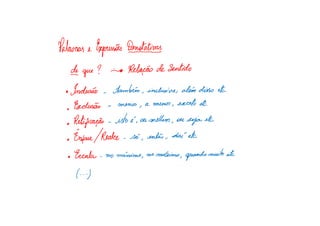 Palavras e Expressões Denotativas
de que? → Relação de Sentido
• Inclusão - também, inclusive, além disso etc
• Exclusão - menos, a menos, exceto etc
• Retificação - isto é, ou melhor, ou seja etc
• Ênfase / Realce - só, então, daí etc
• Exceta - no mínimo, no máximo, quando muito etc
(...)